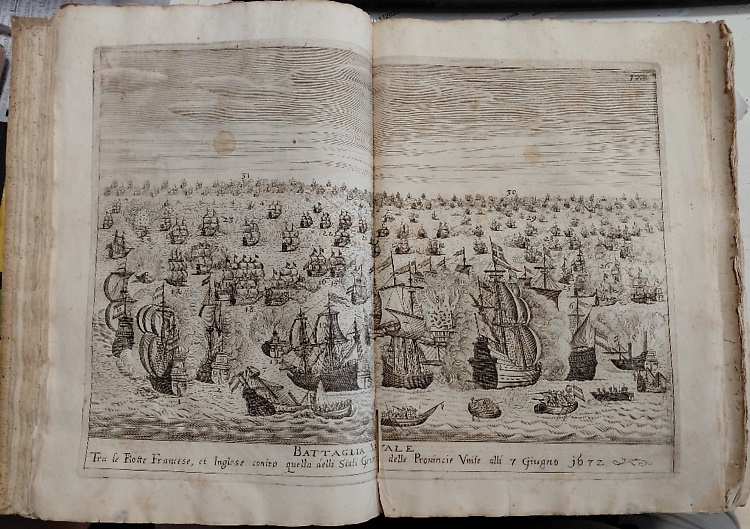 31
30
29
BATTAGLIA
ALE
Tra le Flotte Francese, et Inglese contro quella delli Stati Gen delle Provincie Unite alli 7 Giugno 1672